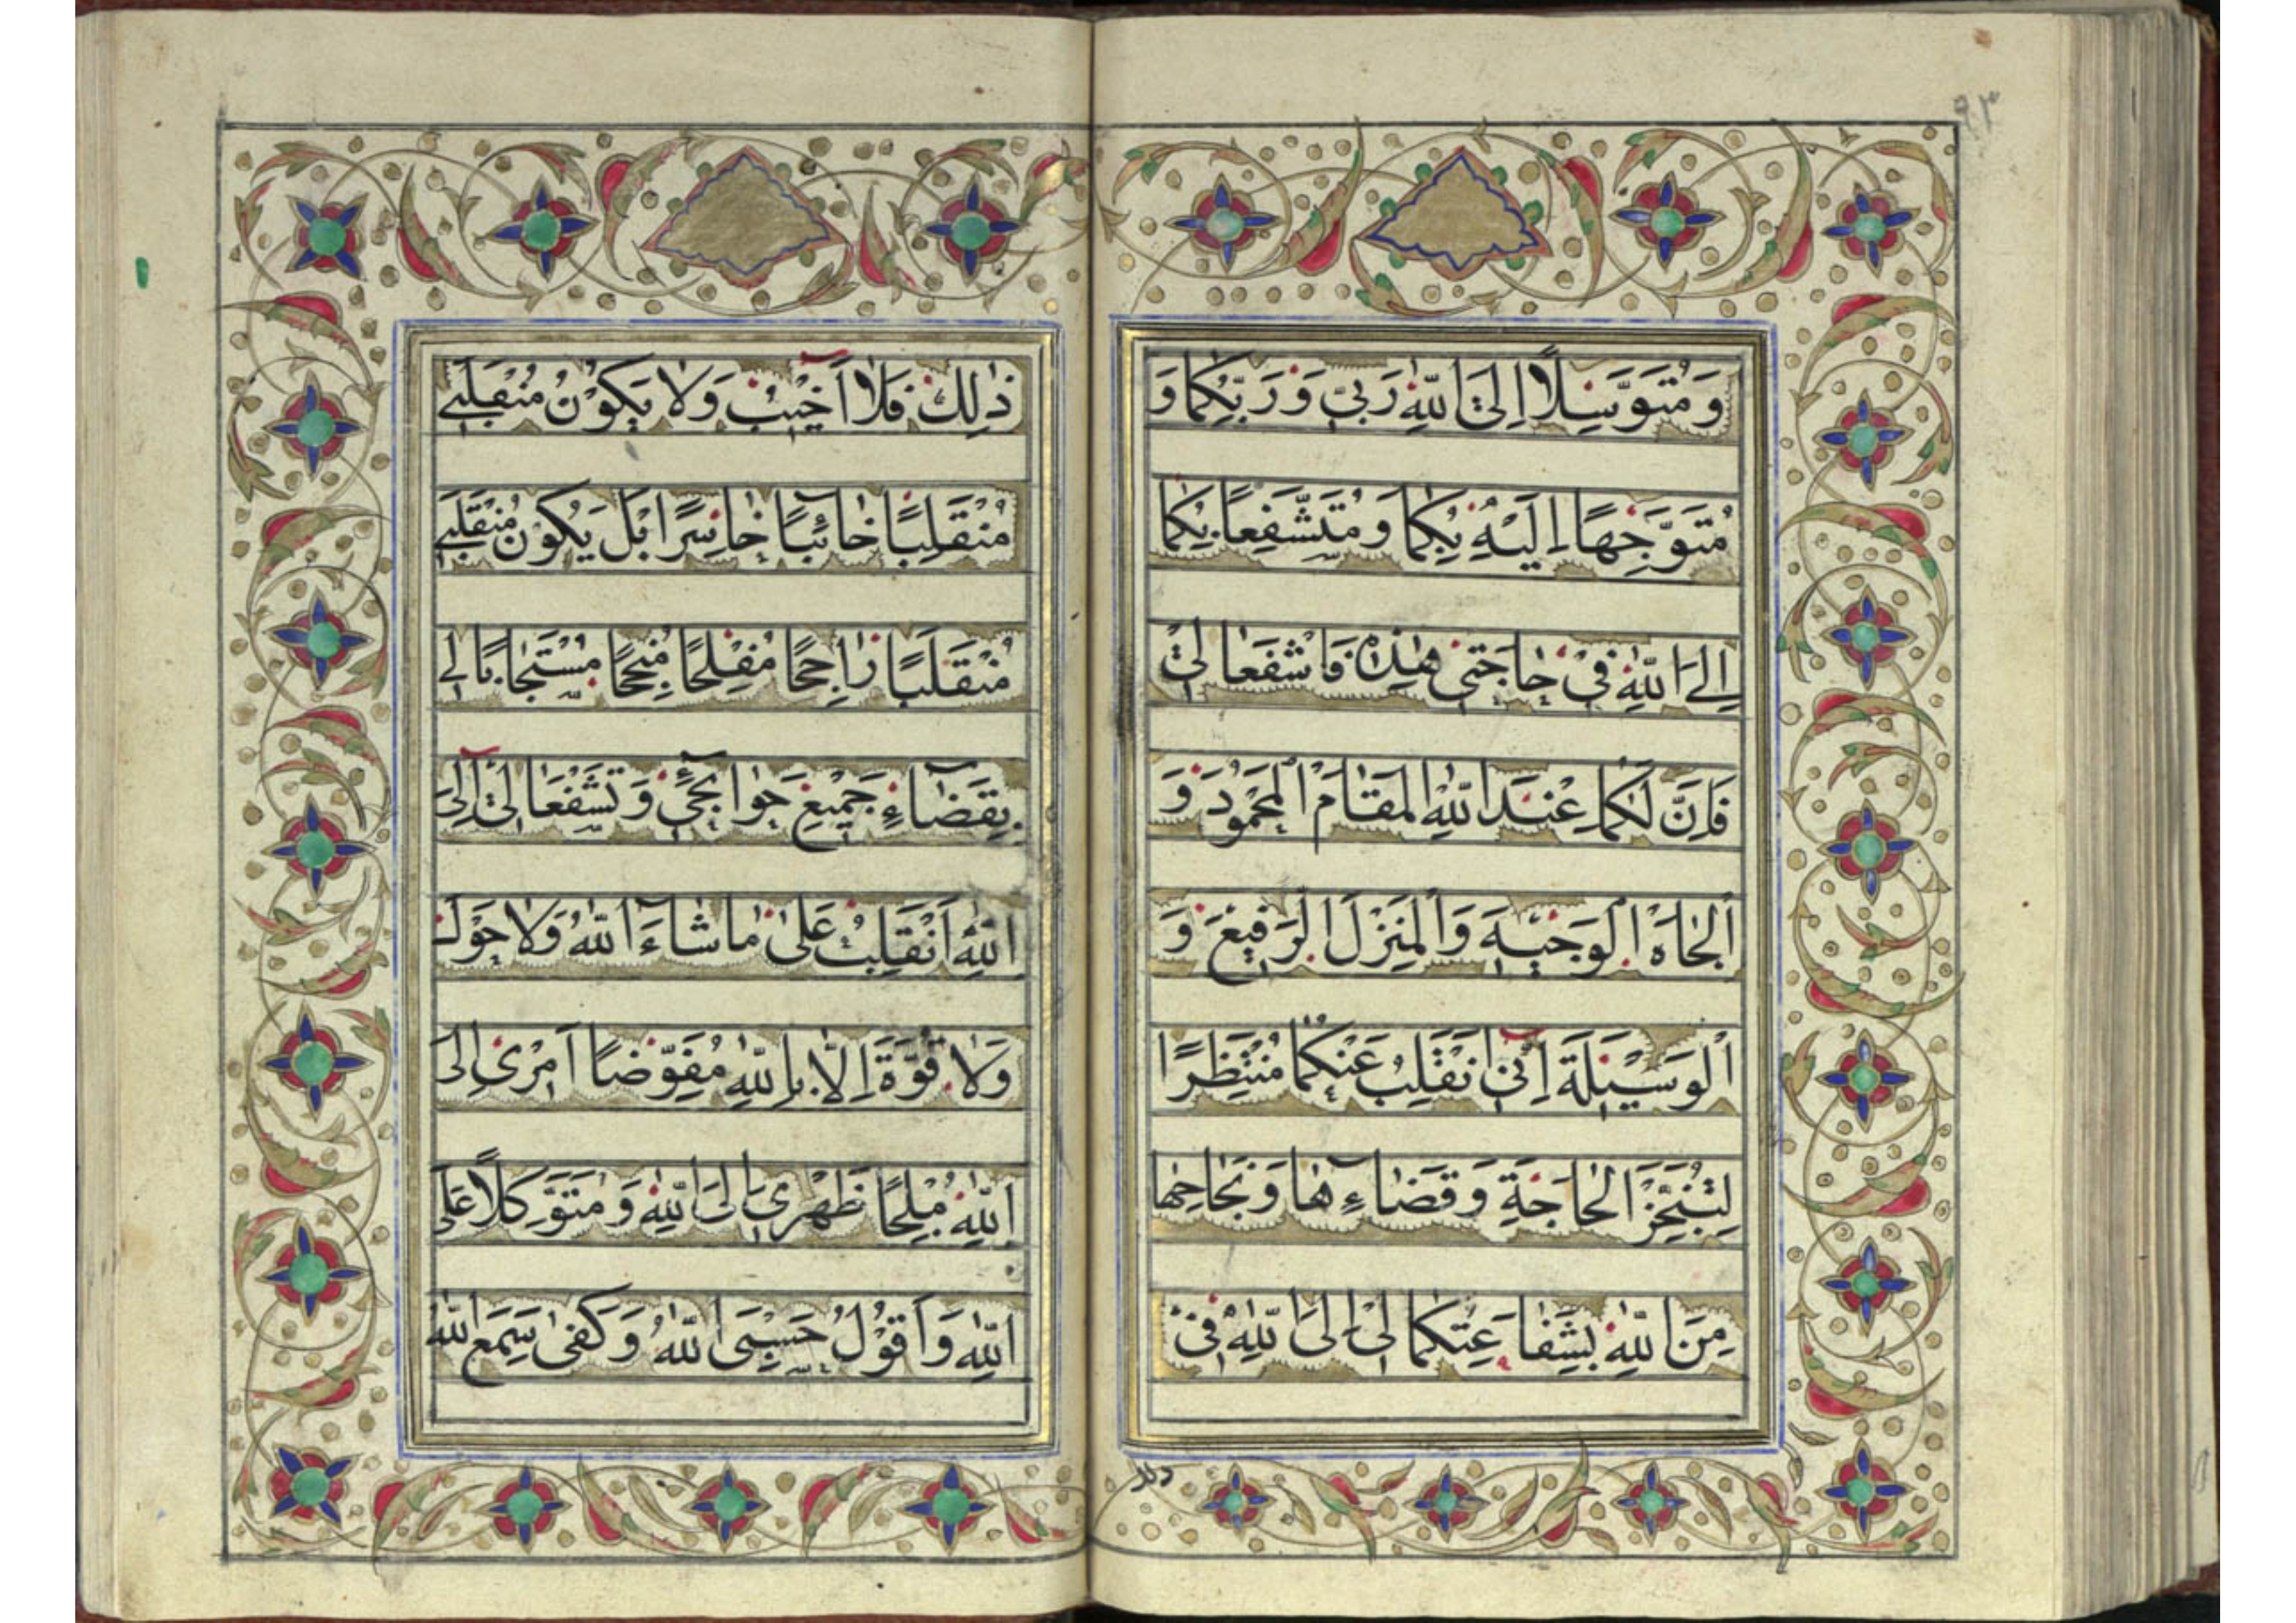 ٩٣
وَ مُتَوَسِّلًا اِلَی اللّٰهِ رَبّی وَ رَبِّکُمٰا وَ
مُتَوَجِّهًا اِلَیْهِ بِکُمٰا وَ مُتَشَفِّعًا بِکُمٰا
اِلَی اللّٰهِ فیْ حٰاجَتیْ هٰذِهِ فَاشْفَعٰا لیْ
فَاِنَّ لَکُمٰا عِنْدَ اللّٰهِ الْمَقٰامَ الْمَحْمُوْدَ وَ
الْجٰاهَ الْوَجیْهَ وَ الْمَنْزِلَ الرَّفیْعَ وَ
الْوَسیْلَةَ اِنّیْ اَنْقَلِبُ عَنْکُمٰا مُنْتَظِرًا
لِتَنَجُّزِ الْحٰاجَةِ وَ قَضٰاءِهٰا وَ نَجٰاحِهٰا
مِنَ اللّٰهِ بِشَفٰاعَتِکُمٰا لیْ اِلَی اللّٰهِ فیْ
ذلک
ذٰلِكَ فَلٰا اَخیْبُ وَلٰا یَکُوْنُ مُنْقَلَبیْ
مُنْقَلِبًا خٰائِبًا خٰاسِرًا بَلْ یَکُوْنُ مُنْقَلَبیْ
مُنْقَلَبًا رٰاجِحًا مُفْلِحًا مُنْجِحًا مُسْتَجٰابًا لیْ
بِقَضٰاءِ جَمیْعِ حَوٰائِجیْ وَ تَشَفَّعٰا لیْ اِلَی
اللّٰهِ اَنْقَلِبُ عَلیٰ مٰا شٰاءَ اللّٰهُ وَلٰا حَوْلَ
وَلٰا قُوَّةَ اِلّٰا بِاللّٰهِ مُفَوِّضًا اَمْریْ اِلَی
اللّٰهِ مُلْجِٔا ظَهْریْ اِلَی اللّٰهِ وَ مُتَوَکِّلًا عَلَی
اللّٰهِ وَ اَقُوْلُ حَسْبِیَ اللّٰهُ وَ کَفیٰ سَمِعَ اللّٰهُ